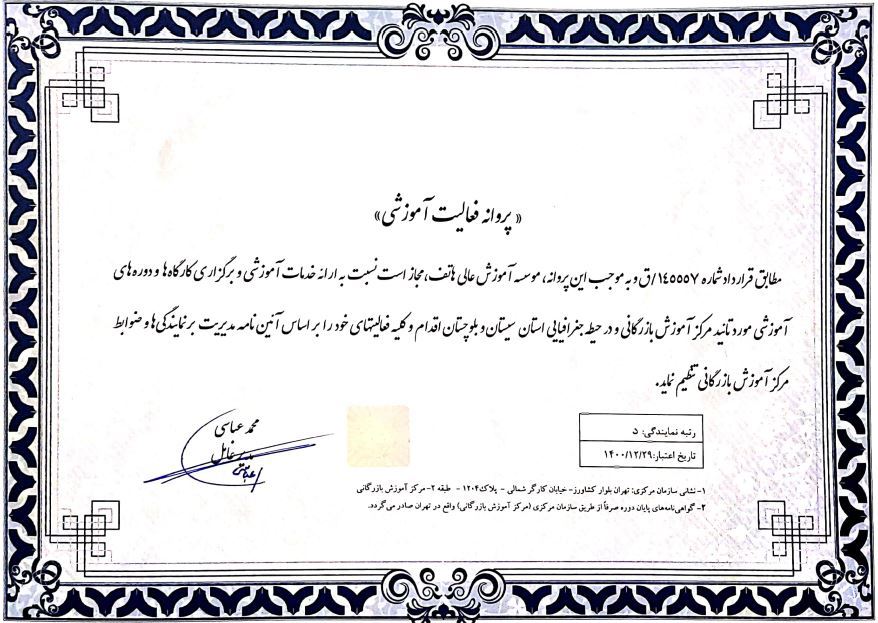 « پروانه فعالیت آموزشی»
مطابق قرارداد شماره ۱۴۵۵۵۷/ق و به موجب این پروانه، موسسه آموزش عالی هاتف، مجاز است نسبت به ارائه خدمات آموزشی و برگزاری کارگاه ها و دوره های
آموزشی مورد تائید مرکز آموزش بازرگانی و در حیطه جغرافیایی استان سیستان و بلوچستان اقدام و کلیه فعالیتهای خود را بر اساس آئین نامه مدیریت بر نمایندگی ها و ضوابط
مرکز آموزش بازرگانی تنظیم نماید.
رتبه نمایندگی: د
تاریخ اعتبار:۱۴۰۰/۱۲/۲۹
محمد عباسی
مدیر عامل
۱- نشانی سازمان مرکزی: تهران بلوار کشاورز- خیابان کارگر شمالی - پلاک۱۲۰۴ - طبقه ۲- مرکز آموزش بازرگانی
۲- گواهی‌نامه‌های پایان دوره صرفاً از طریق سازمان مرکزی (مرکز آموزش بازرگانی) واقع در تهران صادر می‌گردد.